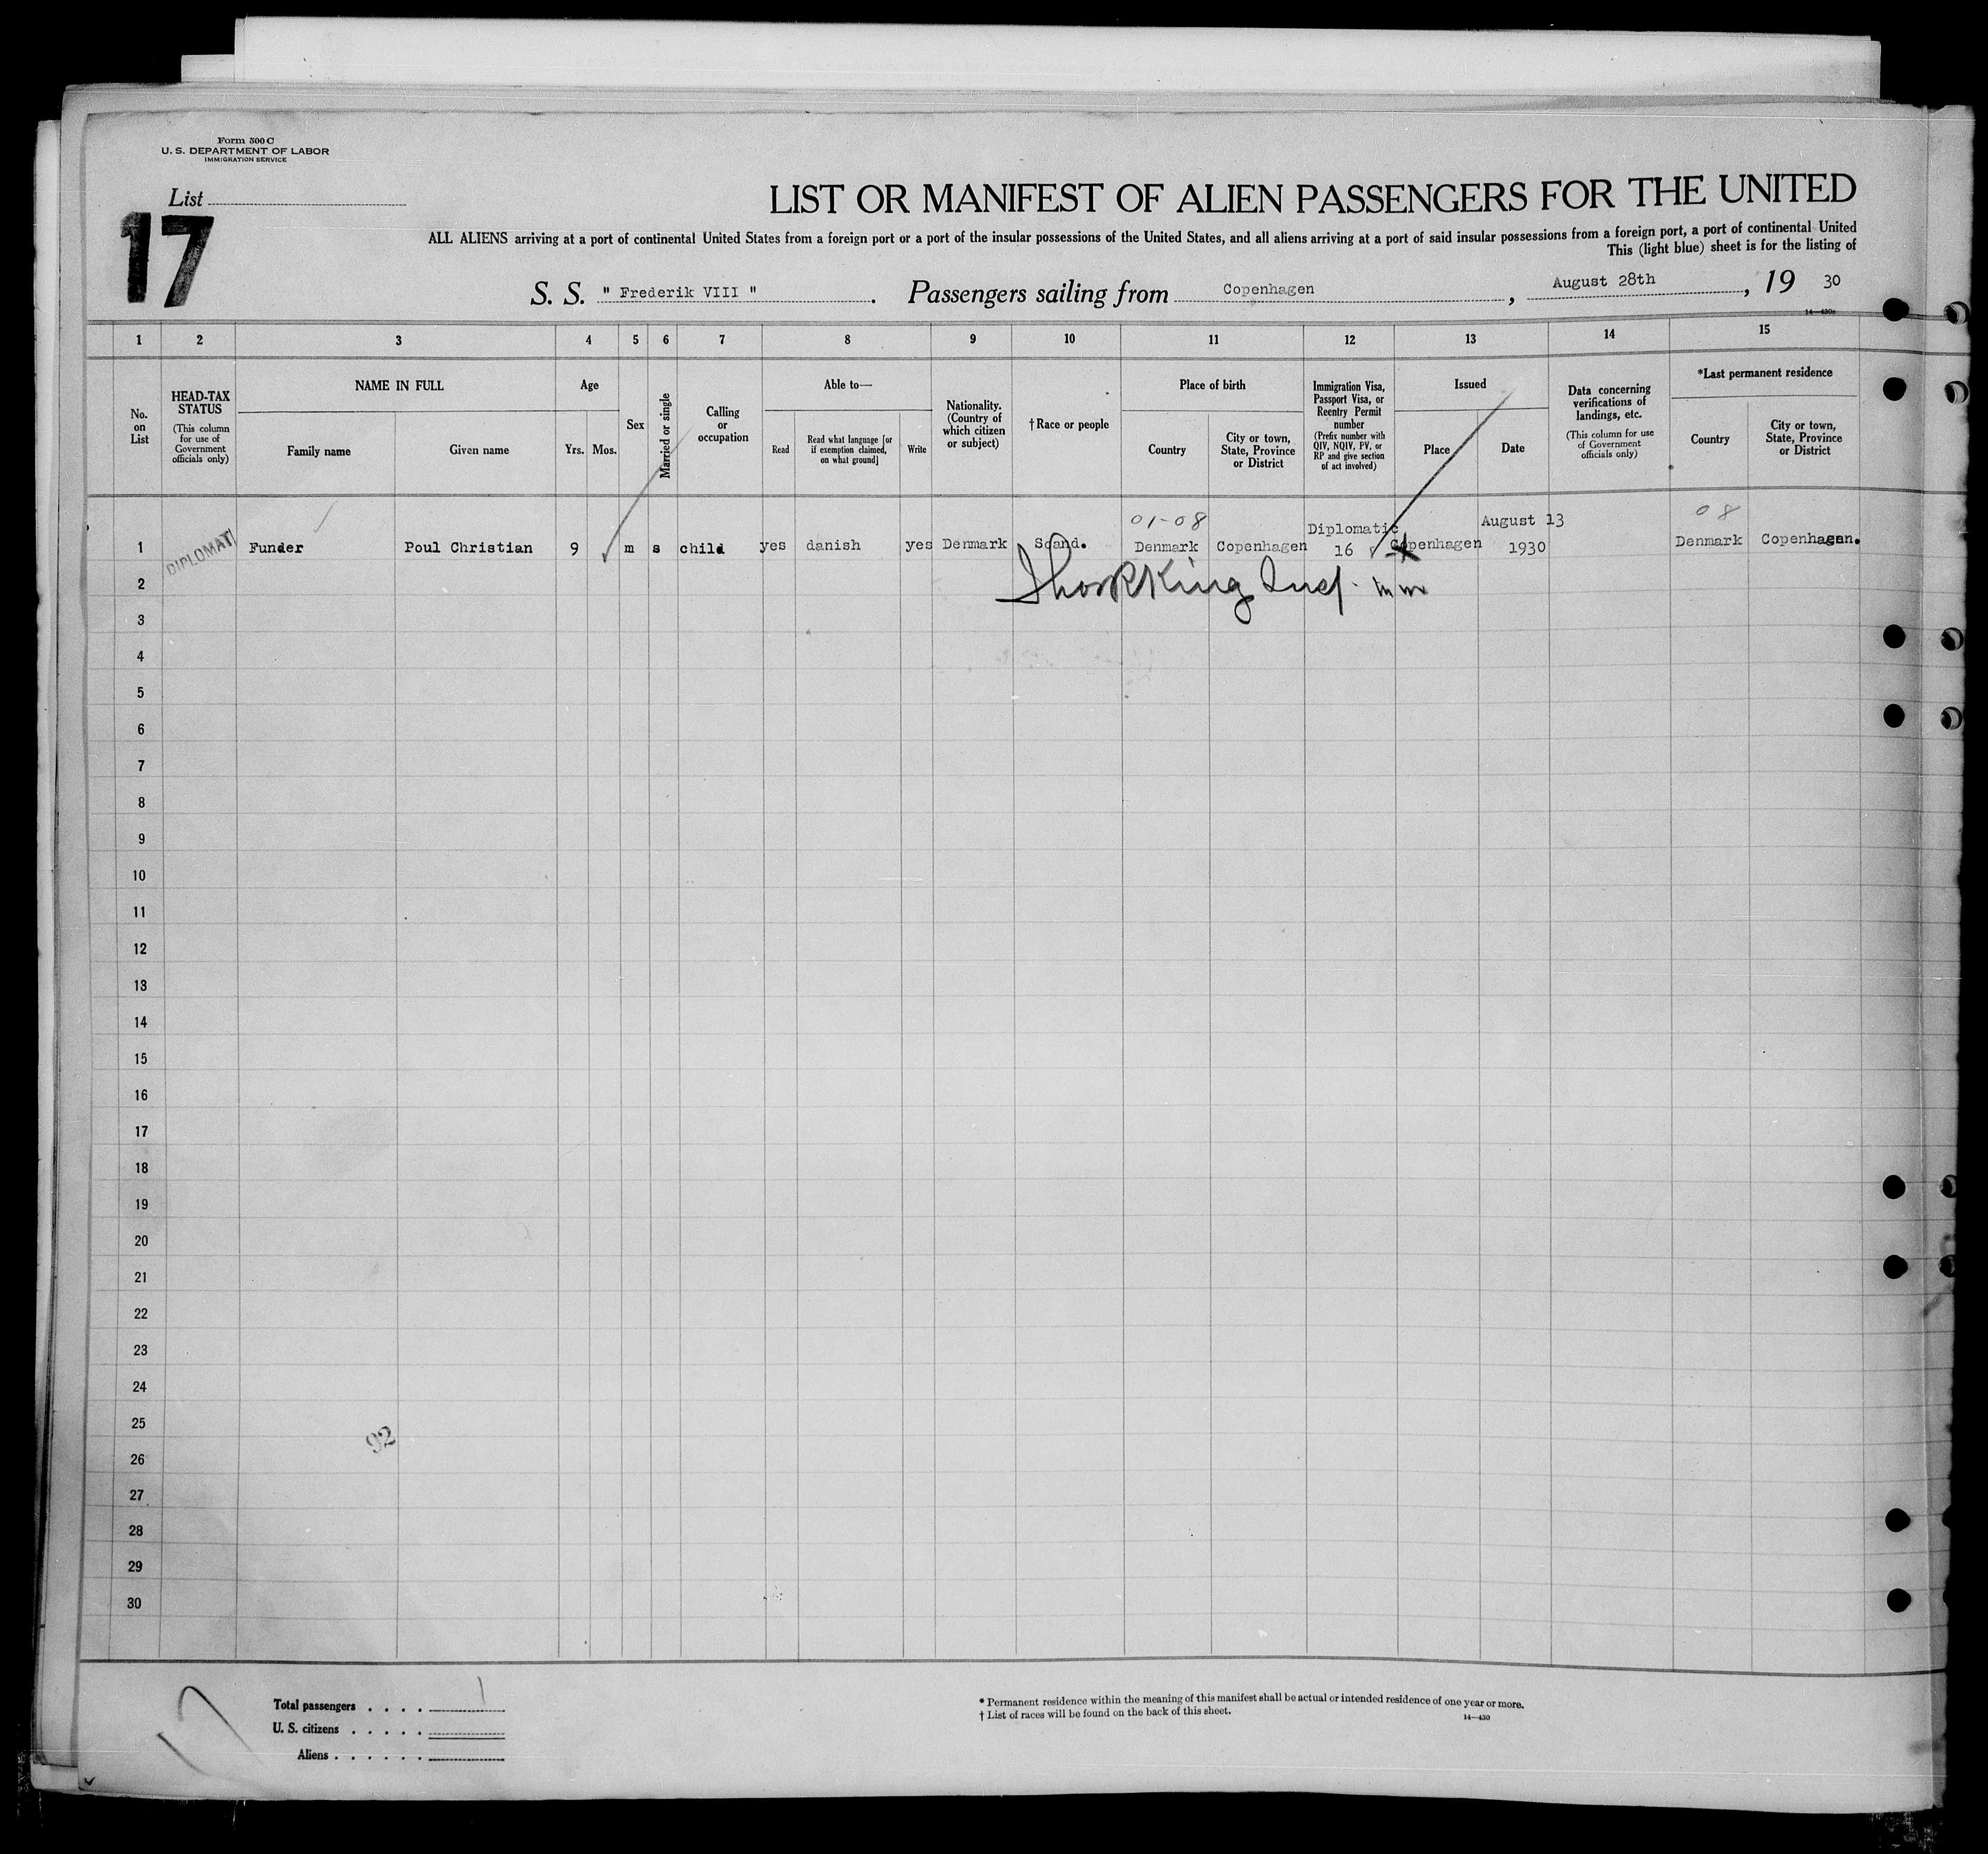 Form 500 C
U. S. DEPARTMENT OF LABOR
IMMIGRATION SERVICE
List
17
LIST OR MANIFEST OF ALIEN PASSENGERS FOR THE UNITED
ALL ALIENS arriving at a port of continental United States from a foreign port or a port of the insular possessions of the United States, and all aliens arriving at a port of said insular possessions from a foreign port, a port of continental United
This (light blue) sheet is for the listing of
S. S. " Frederik VIII " . Passengers sailing from Copenhagen , August 28th , 19 30
14—430c
1 2 3 4 5 6 7 8 9 10 11 12 13 14 15
No. on List
HEAD-TAX STATUS
(This column for use of Government officials only)
NAME IN FULL
Family name
Given name
Age
Yrs. Mos.
Sex
Married or single
Calling or occupation
Able to—
Read
Read what language [or if exemption claimed, on what ground]
Write
Nationality. (Country of which citizen or subject)
† Race or people
Place of birth
Country
City or town, State, Province or District
Immigration Visa, Passport Visa, or Reentry Permit number
(Prefix number with QIV, NQIV, PV, or RP and give section of act involved)
Issued
Place
Date
Data concerning verifications of landings, etc.
(This column for use of Government officials only)
*Last permanent residence
Country
City or town, State, Province or District
01-08 08
1 DIPLOMAT Funder Poul Christian 9 m s child yes danish yes Denmark Scand. Denmark Copenhagen Diplomatic 16 Copenhagen August 13 1930 Denmark Copenhagen.
2
3
4
5
6
7
8
9
10
11
12
13
14
15
16
17
18
19
20
21
22
23
24
25
92
26
27
28
29
30
17
Total passengers . . . . 1
U. S. citizens . . . . .
Aliens . . . . . .
* Permanent residence within the meaning of this manifest shall be actual or intended residence of one year or more.
† List of races will be found on the back of this sheet.
14—430